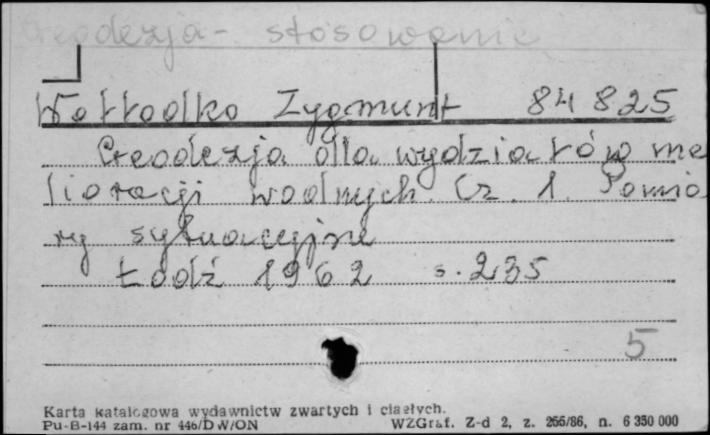 Geodezja - stosowanie
Wołłodko Zygmunt 84 825
Geodezja dla wydziałów me
lioracji wodnych. Cz. 1. Pomia
ry sytuacyjne
Łódź 1962 s. 235
5
Karta katalogowa wydawnictw zwartych i ciągłych.
Pu-B-144 zam. nr 446/DW/ON WZGraf. Z-d 2, z. 266/86, n. 6 350 000